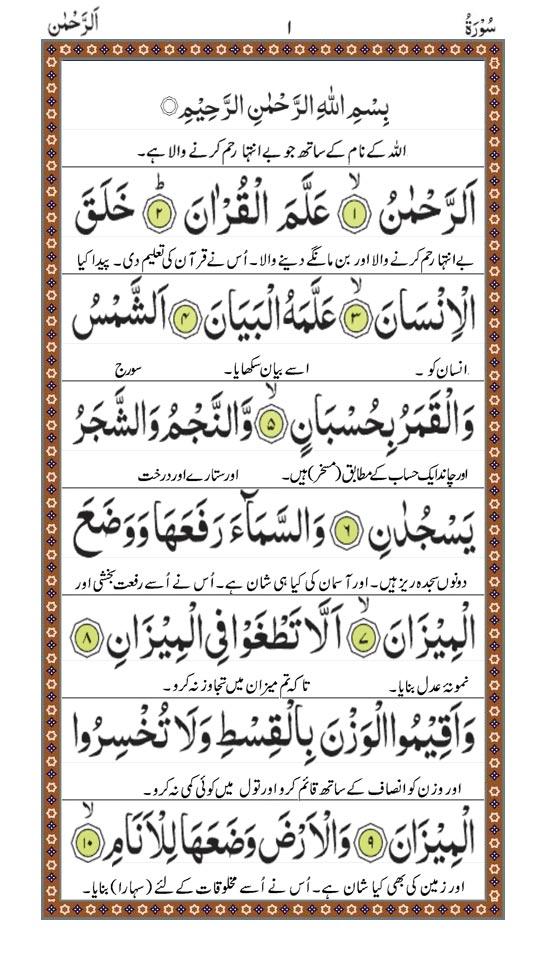 سُوْرَةُ ١ اَلرَّحْمٰن
بِسْمِ اللهِ الرَّحْمٰنِ الرَّحِيْمِ
اللہ کے نام کے ساتھ جو بے انتہا رحم کرنے والا ہے۔
اَلرَّحْمٰنُ ۙ﴿١﴾ عَلَّمَ الْقُرْاٰنَ ؕ﴿٢﴾ خَلَقَ
بے انتہا رحم کرنے والا اور بن مانگے دینے والا۔ اُس نے قرآن کی تعلیم دی۔ پیدا کیا
الْاِنْسَانَ ۙ﴿٣﴾ عَلَّمَهُ الْبَيَانَ ﴿۴﴾ اَلشَّمْسُ
انسان کو ۔ اسے بیان سکھایا۔ سورج
وَالْقَمَرُ بِحُسْبَانٍ ۙ﴿۵﴾ وَّالنَّجْمُ وَالشَّجَرُ
اور چاند ایک حساب کے مطابق (مسخر) ہیں۔ اور ستارے اور درخت
يَسْجُدٰنِ ﴿٦﴾ وَالسَّمَآءَ رَفَعَهَا وَوَضَعَ
دونوں سجدہ ریز ہیں۔ اور آسمان کی کیا ہی شان ہے۔ اُس نے اُسے رفعت بخشی اور
الْمِيْزَانَ ۙ﴿٧﴾ اَلَّا تَطْغَوْا فِي الْمِيْزَانِ ﴿٨﴾
نمونۂ عدل بنایا۔ تا کہ تم میزان میں تجاوز نہ کرو۔
وَاَقِيْمُوا الْوَزْنَ بِالْقِسْطِ وَلَا تُخْسِرُوا
اور وزن کو انصاف کے ساتھ قائم کرو اور تول میں کوئی کمی نہ کرو۔
الْمِيْزَانَ ﴿٩﴾ وَالْاَرْضَ وَضَعَهَا لِلْاَنَامِ ۙ﴿١٠﴾
اور زمین کی بھی کیا شان ہے۔ اُس نے اُسے مخلوقات کے لئے (سہارا) بنایا۔